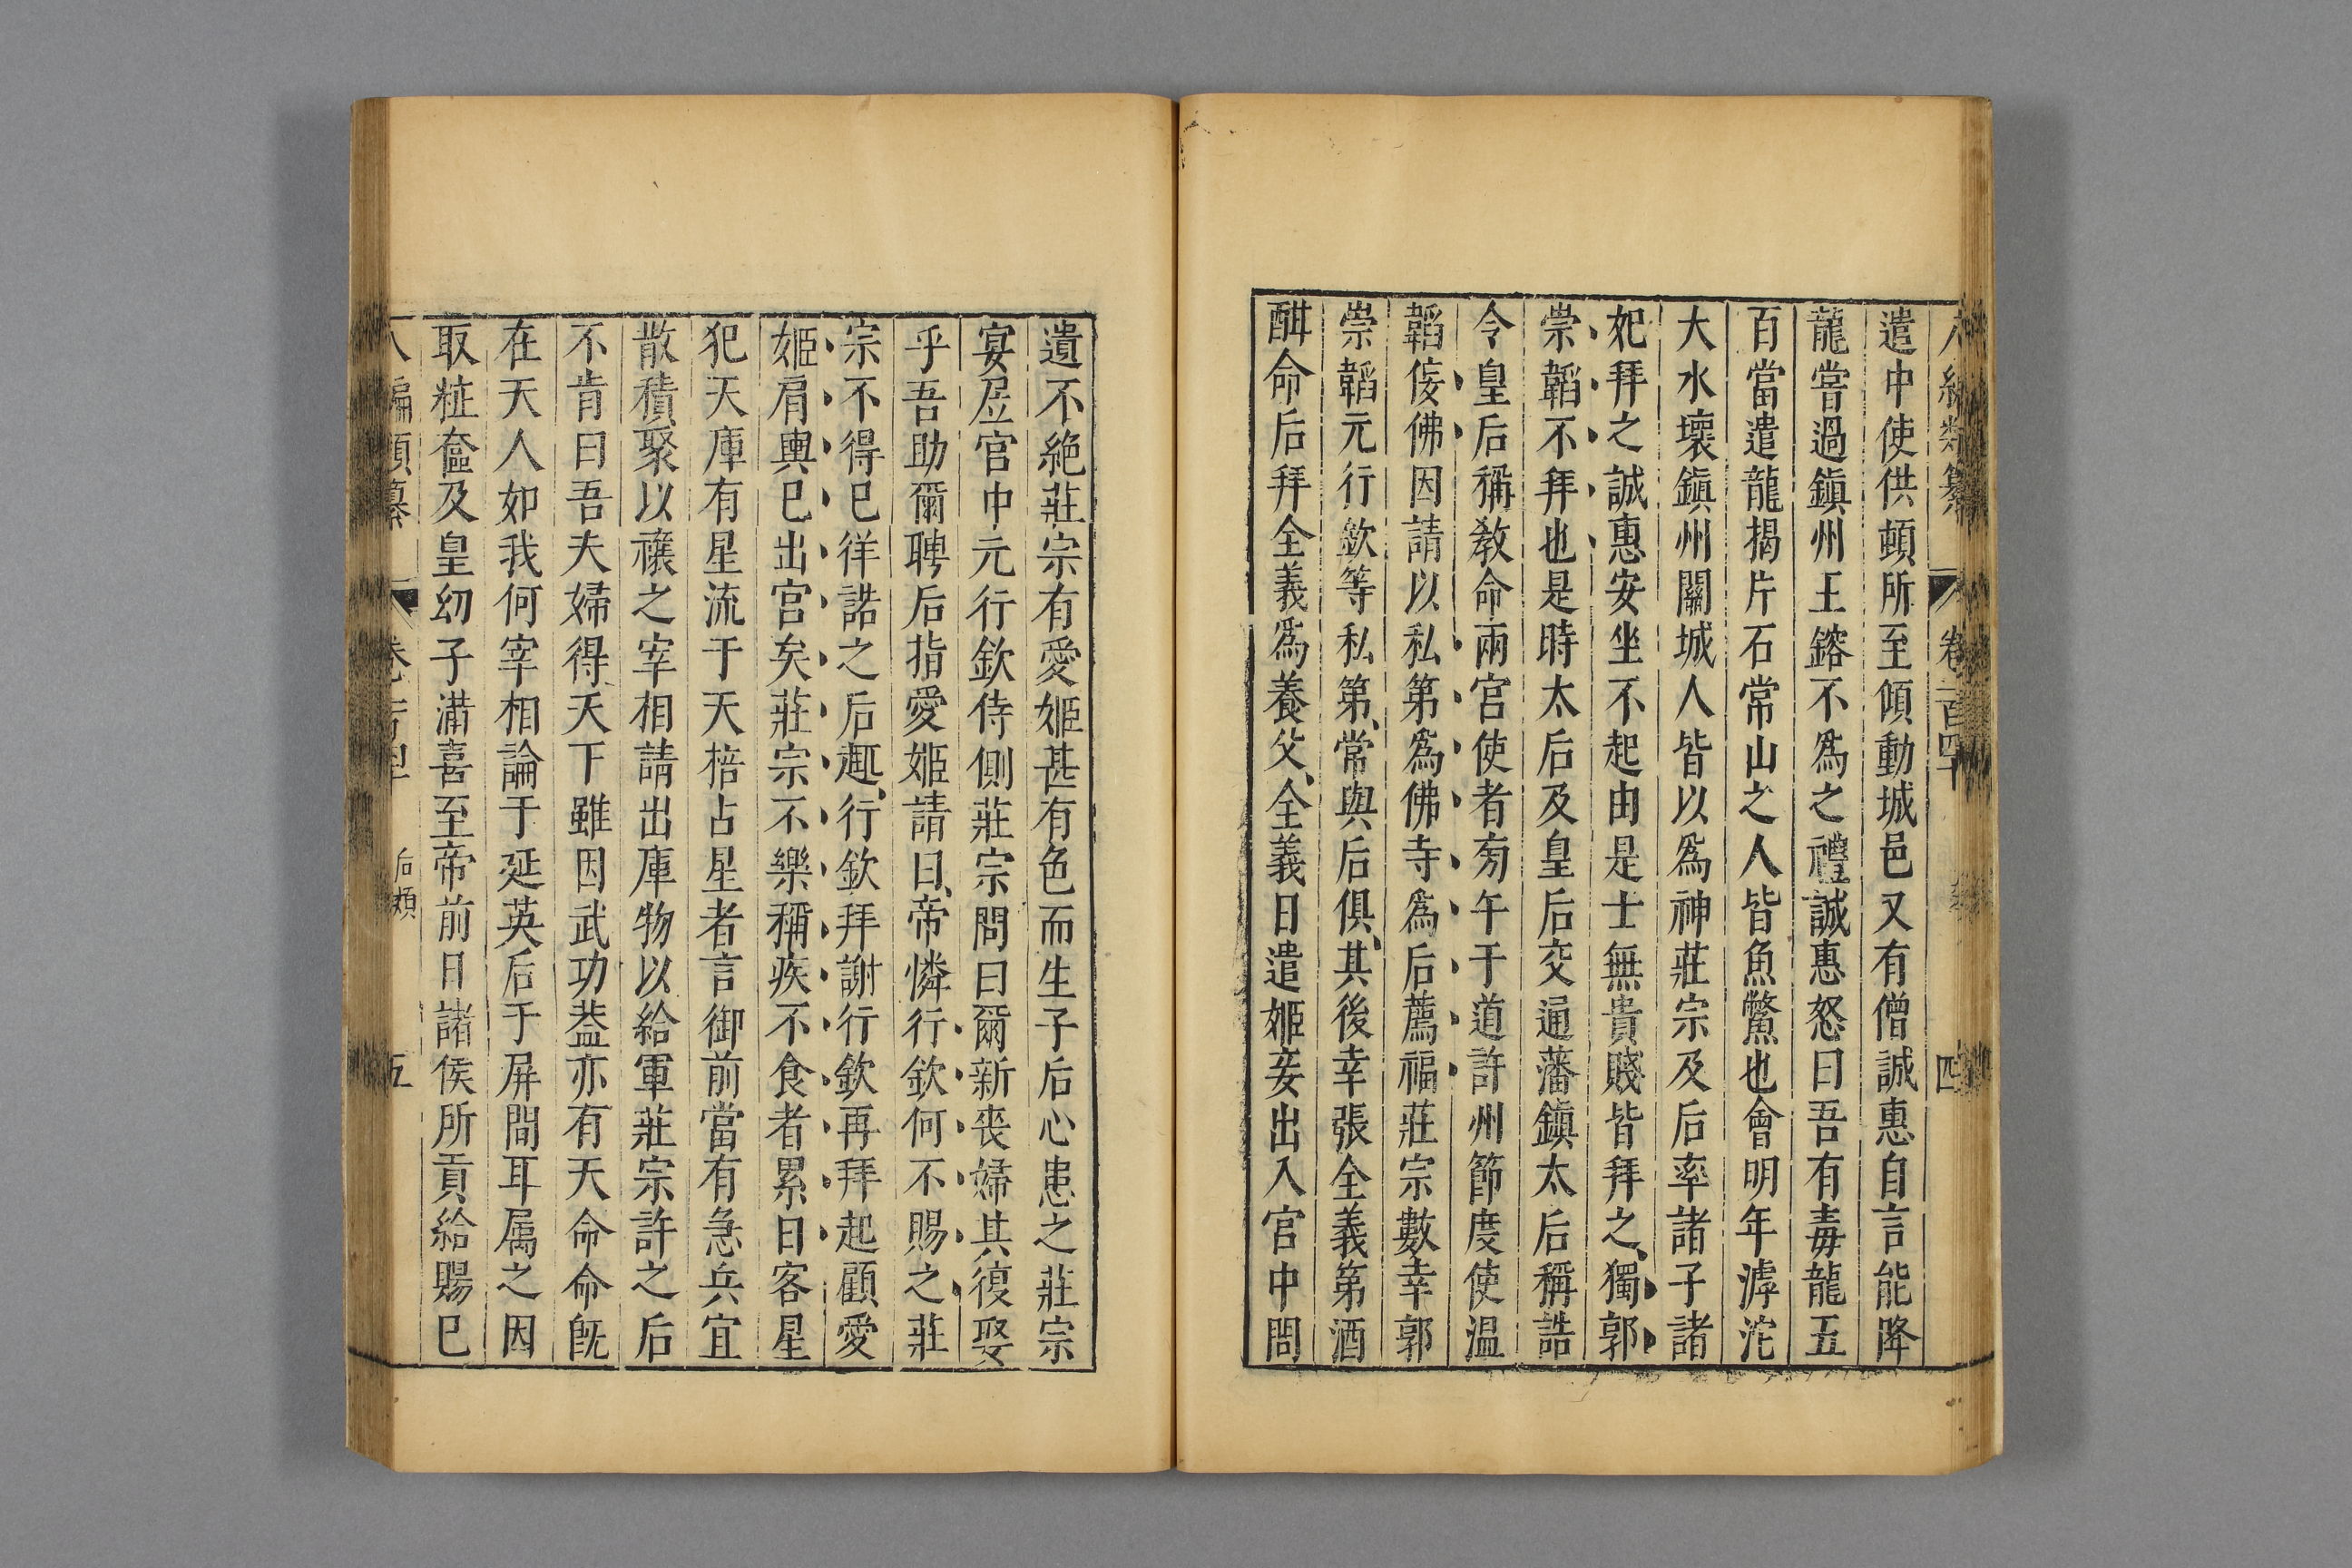 八編類纂 卷一百四十 四
遣中使供頓所至傾動城邑又有僧誠惠自言能降
龍嘗過鎭州王鎔不爲之禮誠惠怒曰吾有毒龍五
百當遣龍揭片石常山之人皆魚鱉也會明年滹沱
大水壞鎭州關城人皆以爲神莊宗及后率諸子諸
妃拜之誠惠安坐不起由是士無貴賤皆拜之獨郭
崇韜不拜也是時太后及皇后交通藩鎭太后稱誥
令皇后稱敎命兩宮使者旁午于道許州節度使温
韜佞佛因請以私第爲佛寺爲后薦福莊宗數幸郭
崇韜元行欽等私第常與后俱其後幸張全義第酒
酣命后拜全義爲養父全義日遣姬妾出入宮中問
遺不絶莊宗有愛姬甚有色而生子后心患之莊宗
宴居宮中元行欽侍側莊宗問曰爾新喪婦其復娶
乎吾助爾聘后指愛姬請曰帝憐行欽何不賜之莊
宗不得已徉諾之后趣行欽拜謝行欽再拜起顧愛
姬肩輿已出宮矣莊宗不樂稱疾不食者累日客星
犯天庫有星流于天棓占星者言御前當有急兵宜
散積聚以禳之宰相請出庫物以給軍莊宗許之后
不肯曰吾夫婦得天下雖因武功葢亦有天命命旣
在天人如我何宰相論于延英后于屏間耳属之因
取粧奩及皇幼子滿喜至帝前曰諸侯所貢給賜已
八編類纂 卷一百四十 后類 五